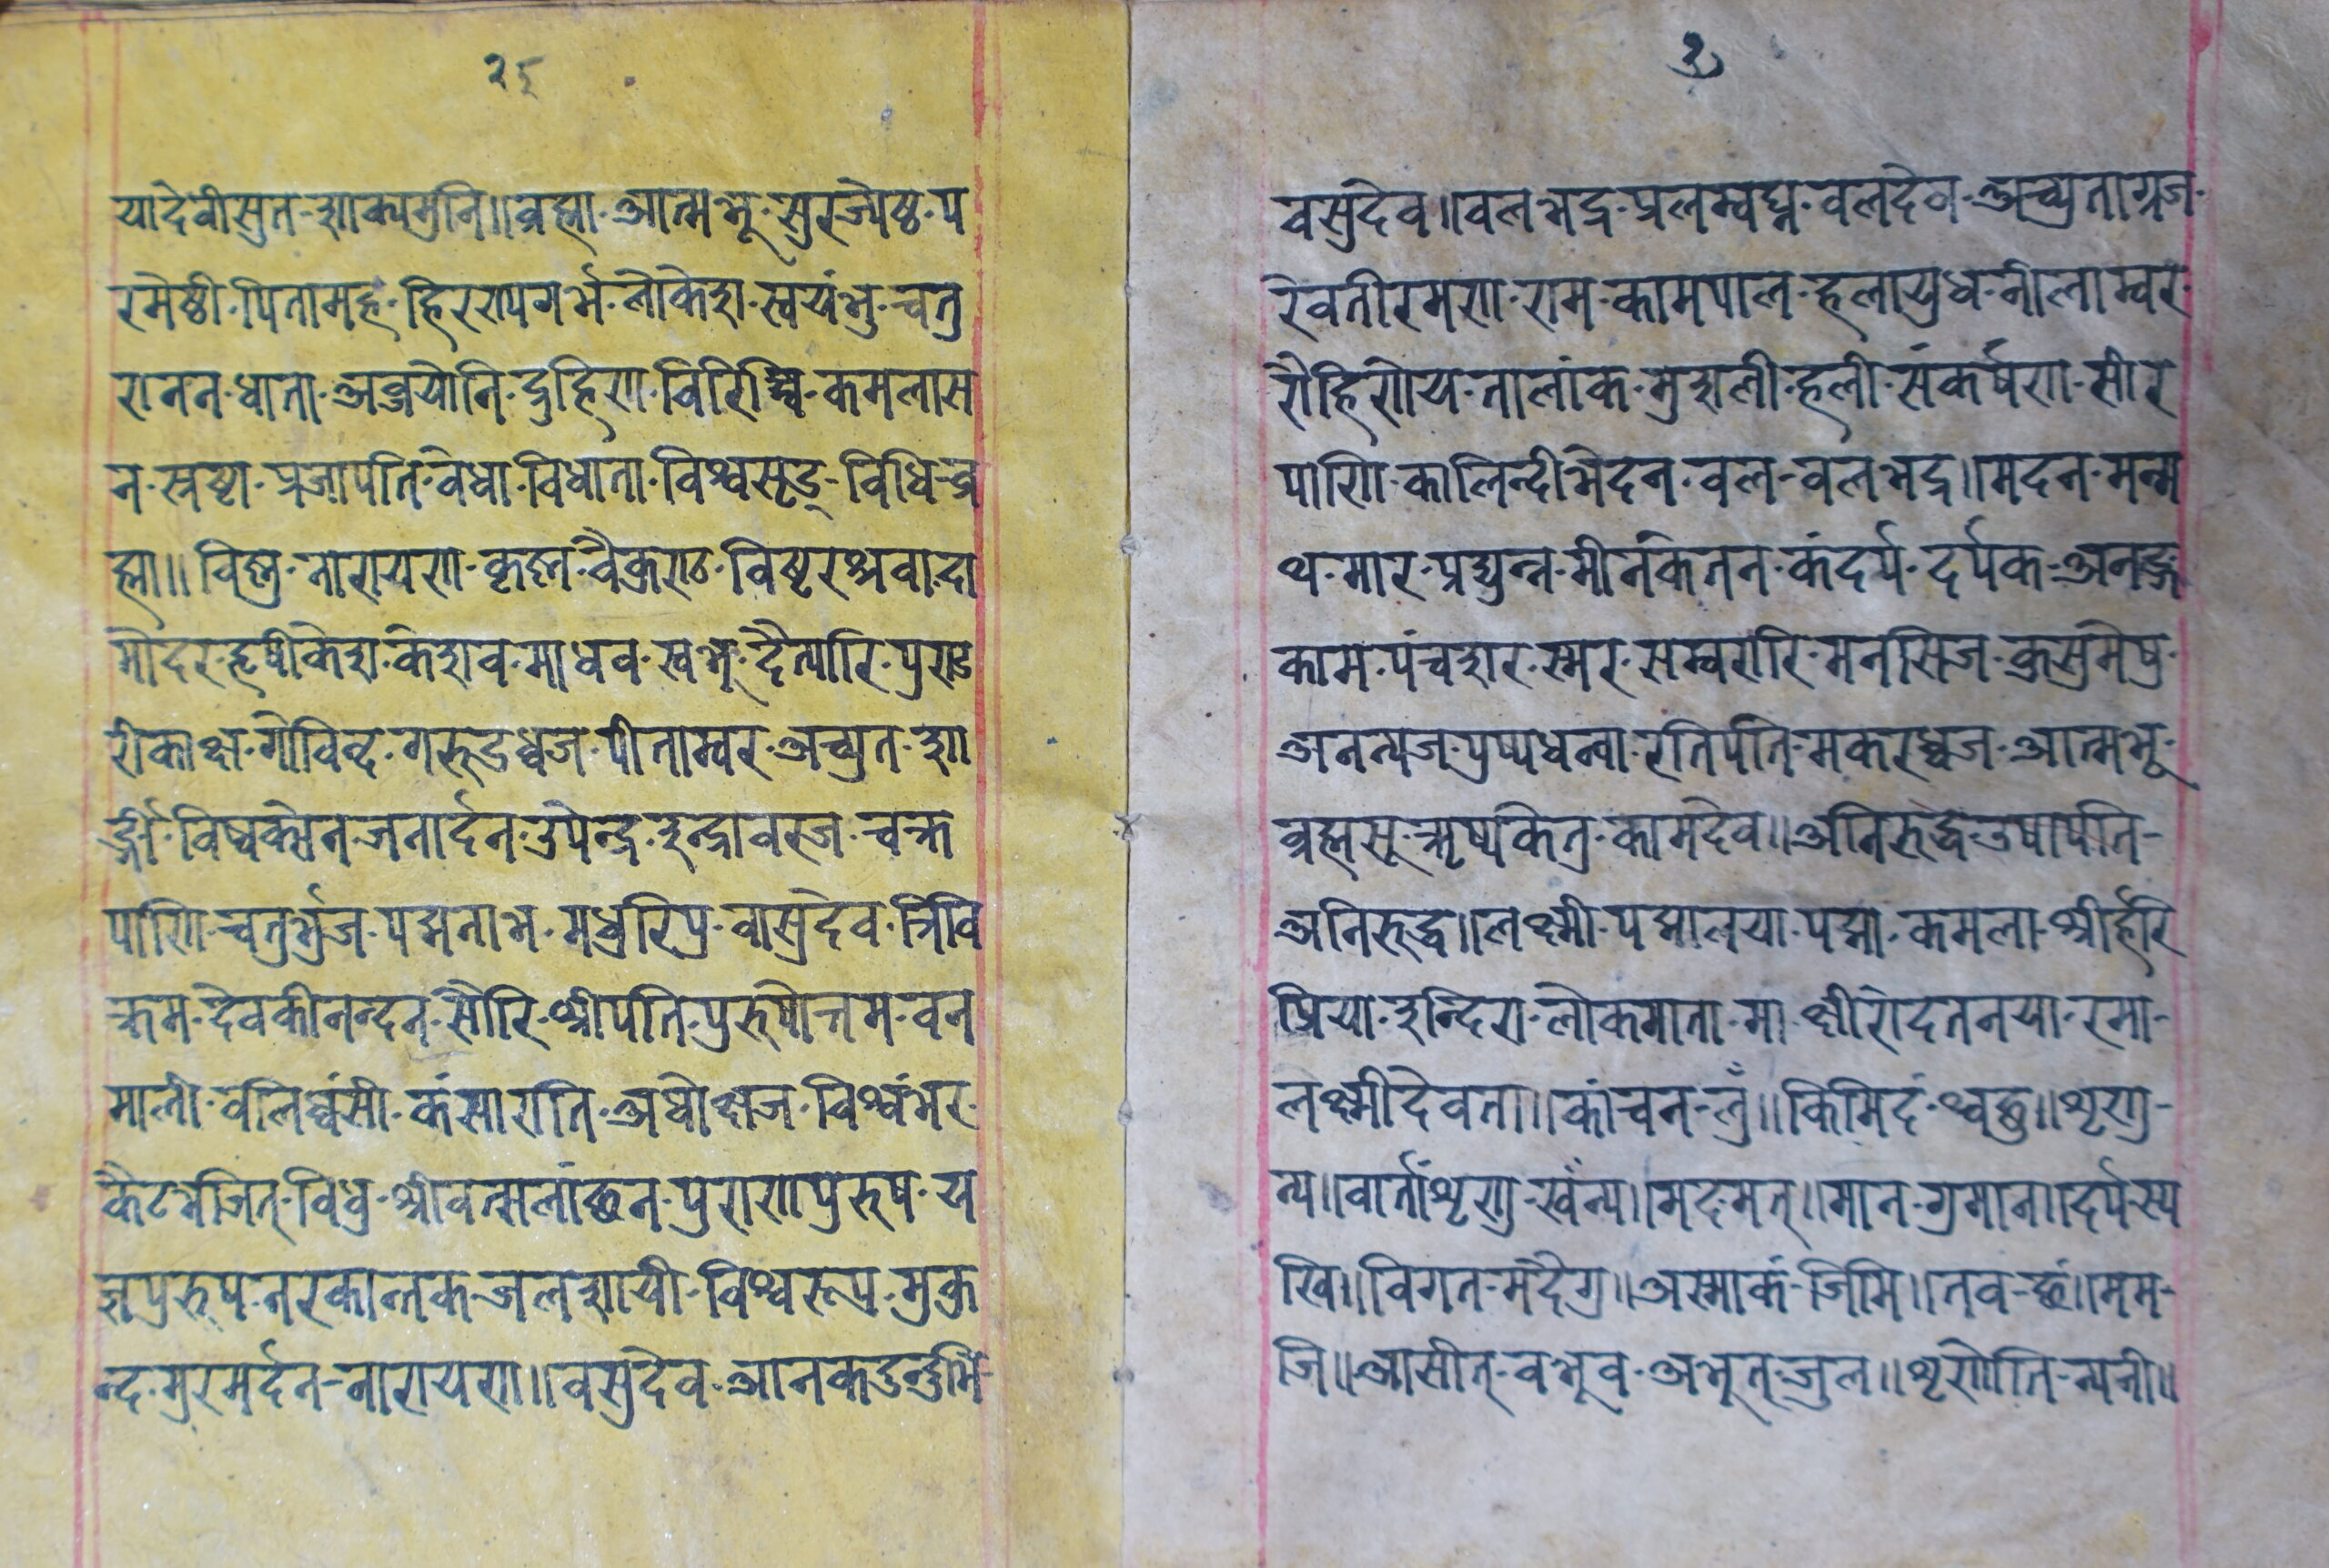 २६
यादेवीसुत-शाक्यमुनि॥व्रह्मा-आत्मभू-सुरज्येष्ठ-प
रमेष्ठी-पितामह-हिरण्यगर्भ-लोकेश-स्वयंभु-चतु
रानन-धाता-अव्जयोनि-द्रुहिण-विरिञ्चि-कमलास
न-स्रष्टा-प्रजापति-वेधा-विधाता-विश्वसृड्-विधि-व्र
ह्मा॥विष्णु-नारायण-कृष्ण-वैकुण्ठ-विष्टरश्रवा-दा
मोदर-हृषीकेश-केशव-माधव-स्वभू-दैत्यारि-पुण्ड
रीकाक्ष-गोविन्द-गरुडध्वज-पीताम्वर-अच्युत-शा
र्ङ्गी-विष्वक्सेन-जनार्दन-उपेन्द्र-इन्द्रावरज-चक्र
पाणि-चतुर्भुज-पद्मनाभ-मधुरिपु-वासुदेव-त्रिवि
क्रम-देवकीनन्दन-सौरि-श्रीपति-पुरुषोत्तम-वन
माली-वलिध्वंसी-कंसाराति-अधोक्षज-विश्वंभर-
कैटभजित्-विधु-श्रीवत्सलांछन-पुराणपुरुष-य
ज्ञपुरुष-नरकान्तक-जलशायी-विश्वरूप-मुकु
न्द-मुरमर्दन-नारायण॥वसुदेव-आनकदुन्दुभि-
वसुदेव॥वलभद्र-प्रलम्वघ्न-वलदेव-अच्युताग्रज-
रेवतीरमण-राम-कामपाल-हलायुध-नीलाम्वर-
रौहिणेय-तालांक-मुशली-हली-संकर्षण-सीर
पाणि-कालिन्दीभेदन-वल-वलभद्र॥मदन-मन्म
थ-मार-प्रद्युम्न-मीनकेतन-कंदर्प-दर्पक-अनङ्ग
काम-पंचशर-स्मर-सम्वरारि-मनसिज-कुसुमेषु-
अनन्यज-पुष्पधन्वा-रतिपति-मकरध्वज-आत्मभू-
व्रह्मसू-ऋष्यकेतु-कामदेव॥अनिरुद्ध-उषापति-
अनिरुद्ध॥लक्ष्मी-पद्मालया-पद्मा-कमला-श्रीर्हरि
प्रिया-इन्दिरा-लोकमाता-मा-क्षीरोदतनया-रमा-
लक्ष्मीदेवता॥कांचन-लुँ॥किमिदं-थ्वछु॥शृणु-
न्य॥वार्तांशृणु-खँन्य॥मद-मत्॥मान-गुमान॥दर्प-स्य
खि॥विगत-मंदैगु॥अस्माकं-जिमि॥तव-छं॥मम-
जि॥आसीत्-वभूव-अभूत्-जुल॥शृणोति-न्यनी॥